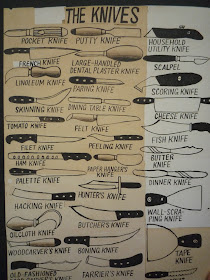 THE KNIVES
POCKET KNIFE
PUTTY KNIFE
HOUSEHOLD
UTILITY KNIFE
FRENCH KNIFE
LARGE-HANDLED
DENTAL PLASTER KNIFE
SCALPEL
LINOLEUM KNIFE
PARING KNIFE
SCORING KNIFE
SKINNING KNIFE
DINING TABLE KNIFE
CHEESE KNIFE
TOMATO KNIFE
FELT KNIFE
FISH KNIFE
FILET KNIFE
PEELING KNIFE
BUTTER
KNIFE
HAM KNIFE
PAPER HANGER'S
KNIFE
DINNER KNIFE
PALETTE KNIFE
HUNTER'S KNIFE
WALL-SCRA-
PING KNIFE
HACKING KNIFE
BUTCHER'S KNIFE
OILCLOTH KNIFE
TAPE
KNIFE
WOODCARVER'S KNIFE
BONING KNIFE
OLD-FASHIONED
FARRIER'S KNIFE